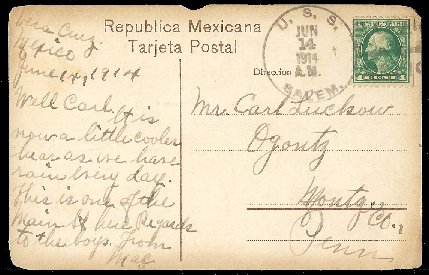 Republica Mexicana
Tarjeta Postal
Vera Cruz
Mexico
June 14, 1914
Well Carl,
It is
now a little cooler
hear as we have
rain every day.
This is one of the
main St here Regards
to the boys. from
U. S. S.
JUN
14
1914
A.M.
SALEM.
Dirección
Mr. Carl Luckow
Ogontz
Montg. Co.,
Penn